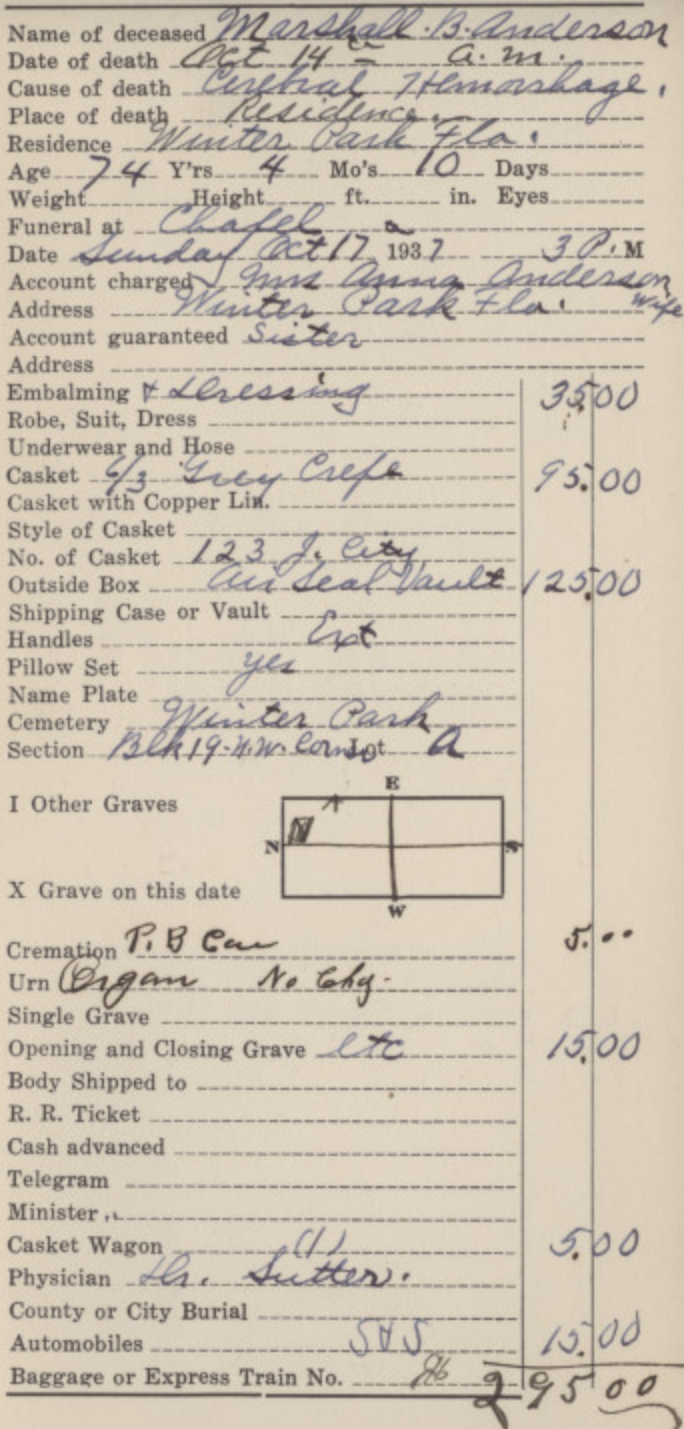 Name of deceased Marshall. B. Anderson
Date of death Oct 14 = a. m.
Cause of death Cerebral Hemorrhage.
Place of death Residence.
Residence Winter Park Fla.
Age 74 Y'rs 4 Mo's 10 Days
Weight Height ft. in. Eyes
Funeral at Chapel
Date Sunday Oct 17 1937 3 P. M
Account charged Mrs Anna Anderson
Address Winter Park Fla. Wife
Account guaranteed Sister
Address
Embalming & Dressing 35.00
Robe, Suit, Dress
Underwear and Hose
Casket 6/3 Grey Crepe 95.00
Casket with Copper Lin.
Style of Casket
No. of Casket 123 J. City
Outside Box Air Seal Vault 125.00
Shipping Case or Vault
Handles Ext
Pillow Set yes
Name Plate
Cemetery Winter Park
Section Blk 19-N.W. Corner Lot A
E
I Other Graves
N S
X Grave on this date
W
Cremation P. B Car 5. 00
Urn Organ No Chg.
Single Grave
Opening and Closing Grave etc 15.00
Body Shipped to
R. R. Ticket
Cash advanced
Telegram
Minister
Casket Wagon (1) 5.00
Physician Dr. Sutter.
County or City Burial
Automobiles 15.00
Baggage or Express Train No. 295.00